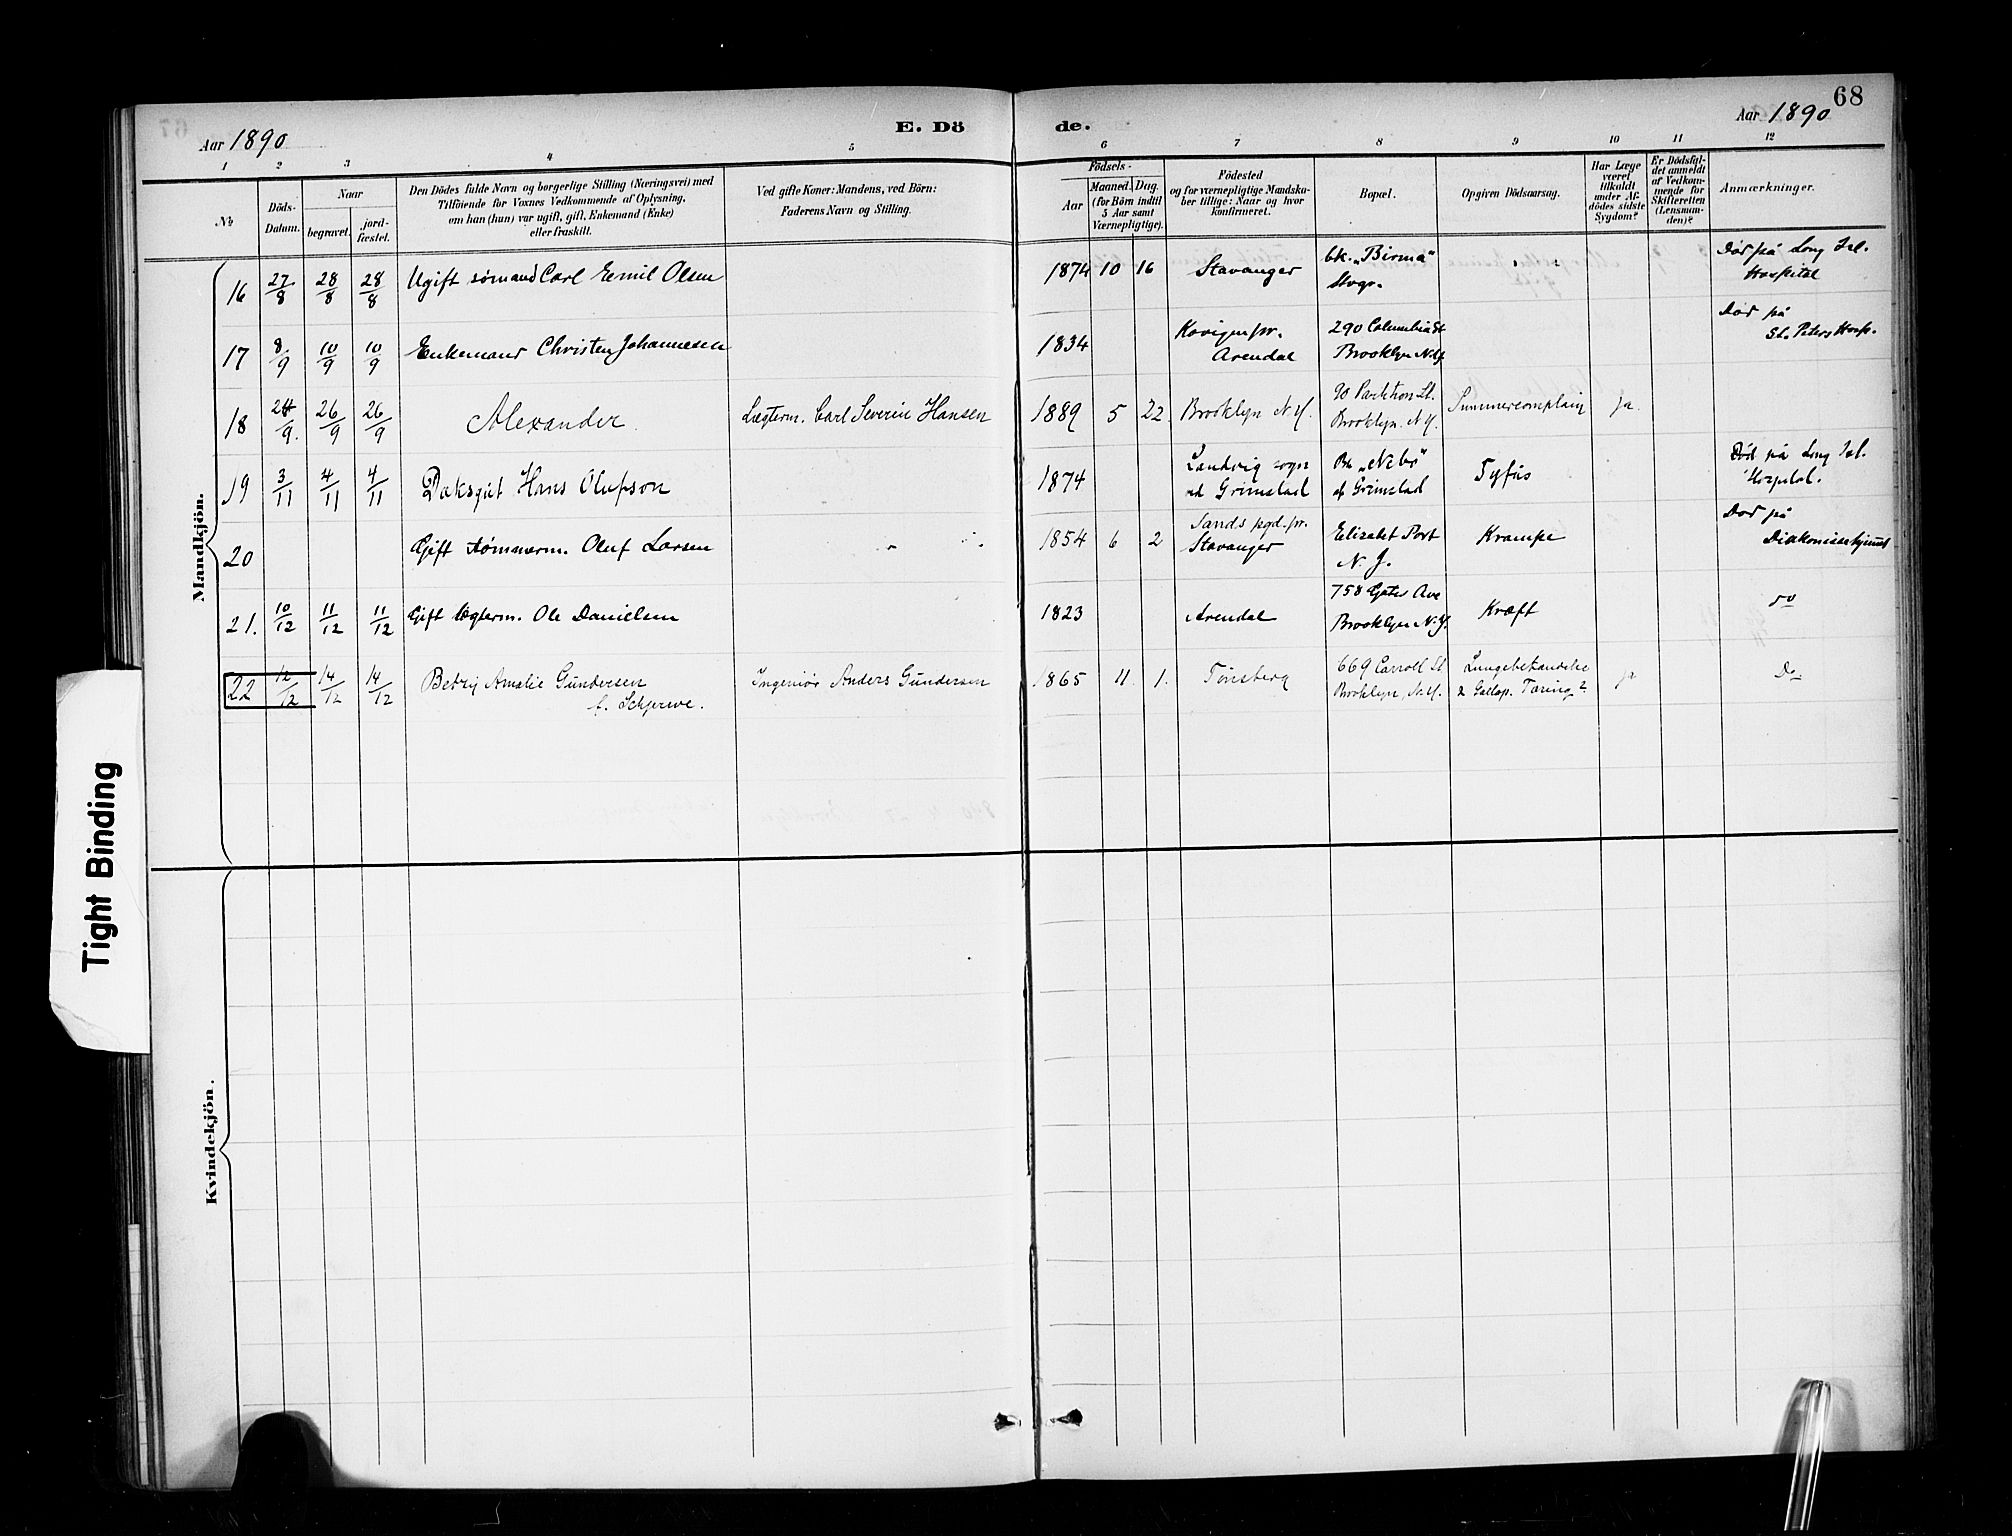 68
Aar 1890
E. Dö
de.
Aar 1890
1 2 3 4 5 6 7 8 9 10 11 12
№
Döds-
Datum.
Naar
begravet.
jord-
fæstet.
Den Dödes fulde Navn og borgerlige Stilling (Næringsvei) med
Tilföiende for Voxnes Vedkommende af Oplysning,
om han (hun) var ugift, gift, Enkemand (Enke)
eller fraskilt.
Ved gifte Koner: Mandens, ved Börn:
Faderens Navn og Stilling.
Födsels-
Aar
Maaned. Dag.
(for Börn indtil
5 Aar samt
Værnepligtige).
Födested
og for værnepligtige Mandska-
ber tillige: Naar og hvor
konfirmeret.
Bopæl.
Opgiven Dödsaarsag.
Har Læge
været
tilkaldt
under Af-
dödes sidste
Sygdom?
Er Dödsfal-
det anmeldt
af Vedkom-
mende for
Skifteretten
(Lensman-
den)?
Anmærkninger.
Mandkjön.
16 27/8 28/8 28/8 Ugift sømand Carl Emil Olsen 1874 10 16 Stavanger bk. „Birma" Stvgr. Død på Long Isl. Hospital
17 8/9 10/9 10/9 Enkemand Christen Johannesen 1834 pr. Arendal 290 Columbia St Brooklyn N.Y. Død på St. Peters Hosp.
18 24/9. 26/9 26/9 Alexander. Lægterm. Carl Severin Hansen 1889 5 22. Brooklyn N.Y. 90 St. Brooklyn. N.Y. Summercomplain ja.
19 3/11 4/11 4/11 Dæksgut Hans Olufson 1874 Landvig sogn ved Grimstad Bk „Nebo" af Grimstad Tyfus Død på Long Isl. Hospital.
20 Gift tømmerm. Oluf Larsen 1854 6 2 Sands pgd. pr. Stavanger Elizabet Port N. J. Krampe Død på Diakonissehjemmet
21. 10/12 11/12 11/12 Gift lægterm. Ole Danielsen 1823 Arendal 758 Gates Ave Brooklyn N.Y. Kræft do
22 12/12 14/12 14/12 Betzy Amalie Gundersen f. Ingeniør Anders Gundersen 1865 11. 1. Tønsberg 669 Carroll St Brooklyn, N.Y. & Gallop. Tæring? ja Do
Kvindekjön.
Tight Binding